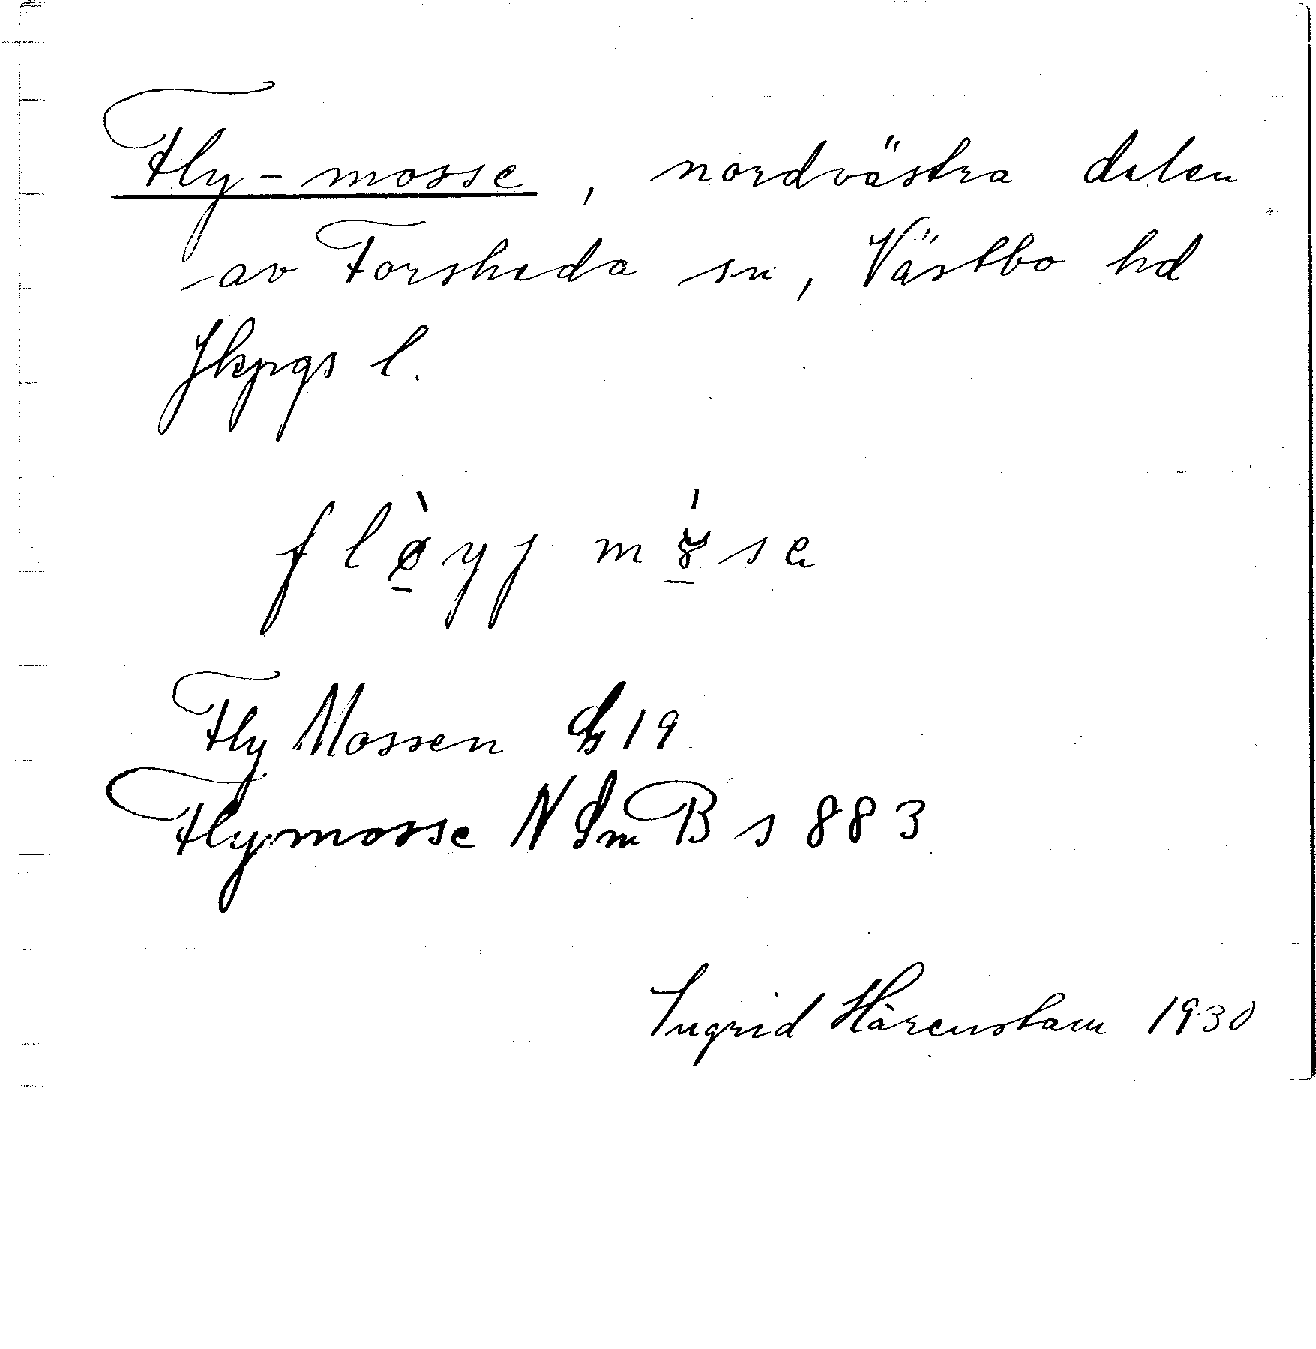 Fly-mosse, nordvästra delen
av Forsheda sn, Västbo hd
Jkpgs l.
Fly Mossen 19
Flymosse N Sm B s 883
Ingrid Härenstam 1930